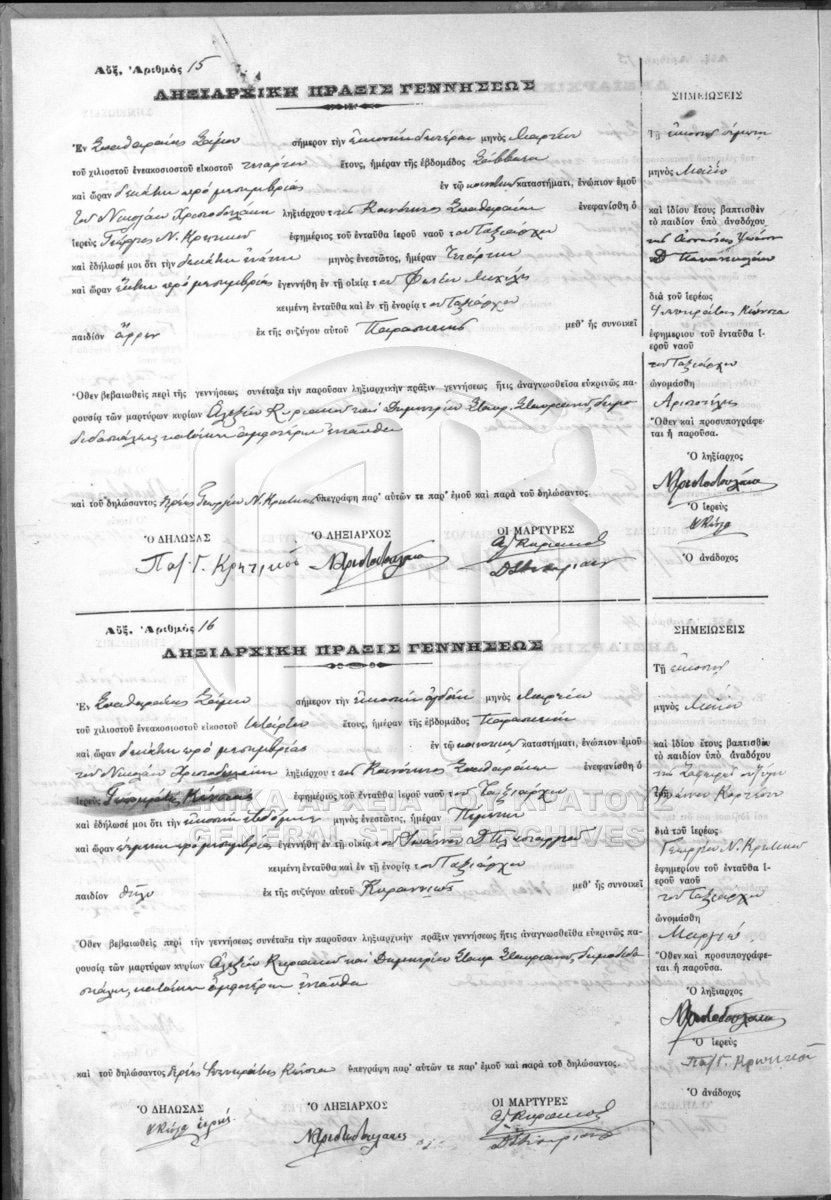 Αὐξ. Ἀριθμός 15
ΛΗΞΙΑΡΧΙΚΗ ΠΡΑΞΙΣ ΓΕΝΝΗΣΕΩΣ
Ἐν Σπαθαραίοις Σάμου σήμερον τὴν εἰκοστὴν δευτέραν μηνὸς Μαρτίου
τοῦ χιλιοστοῦ ἐνεακοσιοστοῦ εἰκοστοῦ τετάρτου ἔτους, ἡμέραν τῆς ἑβδομάδος Σάββατον
καὶ ὥραν δεκάτην πρὸ μεσημβρίας ἐν τῷ κοινοτικῷ καταστήματι, ἐνώπιον ἐμοῦ
τοῦ Νικολάου Χριστοδουλάκη ληξιάρχου τῆς Κοινότητος Σπαθαραίων ἐνεφανίσθη ὁ
ἱερεὺς Γεώργιος Ν. Κρητικοῦ ἐφημέριος τοῦ ἐνταῦθα ἱεροῦ ναοῦ τοῦ Ταξιάρχου
καὶ ἐδήλωσέ μοι ὅτι τὴν δεκάτην ἐνάτην μηνὸς ἐνεστῶτος, ἡμέραν Τετάρτην
καὶ ὥραν ἕκτην πρὸ μεσημβρίας ἐγεννήθη ἐν τῇ οἰκίᾳ τοῦ
κειμένη ἐνταῦθα καὶ ἐν τῇ ἐνορίᾳ τοῦ Ταξιάρχου
παιδίον ἄρρεν ἐκ τῆς συζύγου αὐτοῦ Παρασκευῆς μεθ᾽ ἧς συνοικεῖ
Ὅθεν βεβαιωθεὶς περὶ τῆς γεννήσεως συνέταξα τὴν παροῦσαν ληξιαρχικὴν πρᾶξιν γεννήσεως ἥτις ἀναγνωσθεῖσα εὐκρινῶς πα-
ρουσίᾳ τῶν μαρτύρων κυρίων Ἀλεξίου Κυριακοῦ καὶ Δημητρίου Σταυρ. Σταυριανοῦ δημο-
διδασκάλων κατοίκων ἀμφοτέρων ἐνταῦθα
καὶ τοῦ δηλώσαντος ἱερέως Γεωργίου Ν. Κρητικοῦ ὑπεγράφη παρ᾽ αὐτῶν τε παρ᾽ ἐμοῦ καὶ παρὰ τοῦ δηλώσαντος
Ὁ ΔΗΛΩΣΑΣ Ὁ ΛΗΞΙΑΡΧΟΣ ΟΙ ΜΑΡΤΥΡΕΣ
Παπ. Γ. Κρητικοῦ Ν. Χριστοδουλάκης Α. Κυριακοῦ
Δ Σταυριανός
ΣΗΜΕΙΩΣΕΙΣ
Τῇ εἰκοστῇ πέμπτῃ
μηνὸς Μαΐου
καὶ ἰδίου ἔτους βαπτισθὲν
τὸ παιδίον ὑπὸ ἀναδόχου
τῆς
διὰ τοῦ ἱερέως
ἐφημερίου τοῦ ἐνταῦθα ἱ-
εροῦ ναοῦ
τοῦ Ταξιάρχου
ὠνομάσθη
Ἀριστοτέλης
Ὅθεν καὶ προσυπογράφε-
ται ἡ παροῦσα.
Ὁ ληξίαρχος
Ν. Χριστοδουλάκης
Ὁ ἱερεὺς
Ὁ ἀνάδοχος
Αὐξ. Ἀριθμός 16
ΛΗΞΙΑΡΧΙΚΗ ΠΡΑΞΙΣ ΓΕΝΝΗΣΕΩΣ
Ἐν Σπαθαραίοις Σάμου σήμερον τὴν εἰκοστὴν ὀγδόην μηνὸς Μαρτίου
τοῦ χιλιοστοῦ ἐνεακοσιοστοῦ εἰκοστοῦ τετάρτου ἔτους, ἡμέραν τῆς ἑβδομάδος Παρασκευὴν
καὶ ὥραν δεκάτην πρὸ μεσημβρίας ἐν τῷ κοινοτικῷ καταστήματι, ἐνώπιον ἐμοῦ
τοῦ Νικολάου Χριστοδουλάκη ληξιάρχου τῆς Κοινότητος Σπαθαραίων ἐνεφανίσθη ὁ
ἱερεὺς ἐφημέριος τοῦ ἐνταῦθα ἱεροῦ ναοῦ τοῦ Ταξιάρχου
καὶ ἐδήλωσέ μοι ὅτι τὴν εἰκοστὴν ἑβδόμην μηνὸς ἐνεστῶτος, ἡμέραν Πέμπτην
καὶ ὥραν πρὸ μεσημβρίας ἐγεννήθη ἐν τῇ οἰκίᾳ τοῦ Ἰωάννου
κειμένη ἐνταῦθα καὶ ἐν τῇ ἐνορίᾳ τοῦ Ταξιάρχου
παιδίον θῆλυ ἐκ τῆς συζύγου αὐτοῦ Κυραννιῶς μεθ᾽ ἧς συνοικεῖ
Ὅθεν βεβαιωθεὶς περὶ τὴν γεννήσεως συνέταξα τὴν παροῦσαν ληξιαρχικὴν πρᾶξιν γεννήσεως ἥτις ἀναγνωσθεῖθα εὐκρινῶς πα-
ρουσίᾳ τῶν μαρτύρων κυρίων Ἀλεξίου Κυριακοῦ καὶ Δημητρίου Σταυρ. Σταυριανοῦ δημοδιδα
σκάλων κατοίκων ἀμφοτέρων ἐνταῦθα
καὶ τοῦ δηλώσαντος ἱερέως ὑπεγράφη παρ᾽ αὐτῶν τε παρ᾽ ἐμοῦ καὶ παρὰ τοῦ δηλώσαντος.
Ὁ ΔΗΛΩΣΑΣ Ὁ ΛΗΞΙΑΡΧΟΣ ΟΙ ΜΑΡΤΥΡΕΣ
Ν. Χριστοδουλάκης Α. Κυριακοῦ
Δ Σταυριανός
ΣΗΜΕΙΩΣΕΙΣ
Τῇ εἰκοστῇ
μηνὸς Μαΐου
καὶ ἰδίου ἔτους βαπτισθὲν
τὸ παιδίον ὑπὸ ἀναδόχου
τῆς συζύγου
Ἰωάννου
διὰ τοῦ ἱερέως
Γεωργίου Ν. Κρητικοῦ
ἐφημερίου τοῦ ἐνταῦθα ἱ-
εροῦ ναοῦ
τοῦ Ταξιάρχου
ὠνομάσθη
Μαργιώ
Ὅθεν καὶ προσυπογράφε-
ται ἡ παροῦσα.
Ὁ ληξίαρχος
Ν. Χριστοδουλάκης
Ὁ ἱερεὺς
Παπ. Γ. Κρητικοῦ
Ὁ ἀνάδοχος
ΓΕΝΙΚΑ ΑΡΧΕΙΑ ΤΟΥ ΚΡΑΤΟΥΣ
GENERAL STATE ARCHIVES